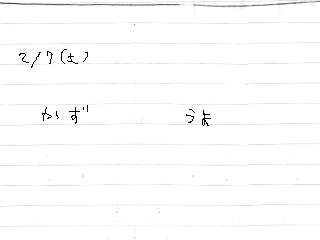 2/7(土)
かず うま